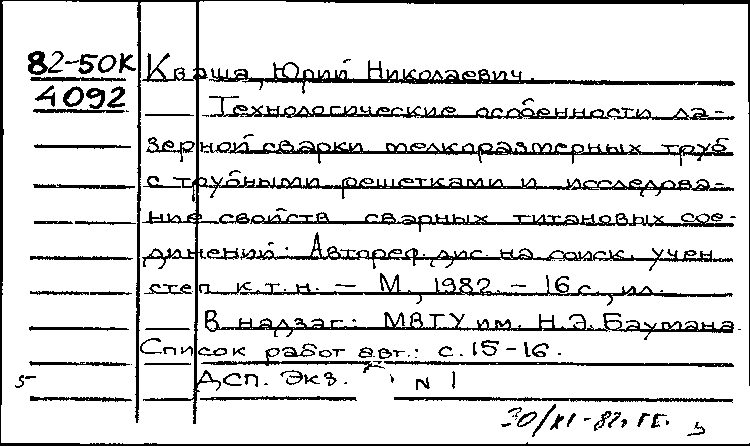 82-50К
4092
Кваша, Юрий Николаевич.
Технологические особенности ла-
зерной сварки мелкоразмерных труб
с трубными решетками и исследова-
ние свойств сварных титановых сое-
динений: Автореф. дис. на соиск. учен
степ к.т.н. — М., 1982. — 16 с., ил.
В надзаг.: МВТУ им. Н.Э. Баумана.
Список работ авт.: с. 15-16.
5- ДСП. Экз. N 1
30/XI-82г.